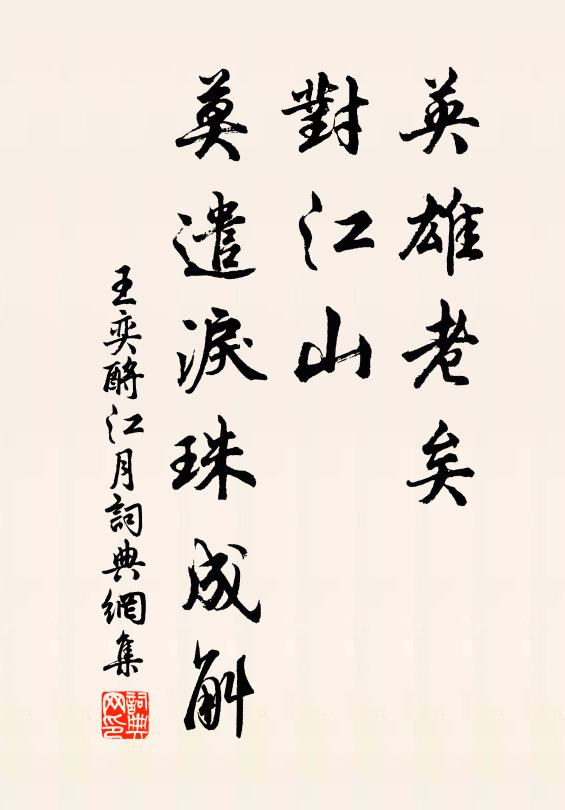 英雄老矣
對江山
莫遣淚珠成斛
王奕酹江月詞典網集
詞典網印